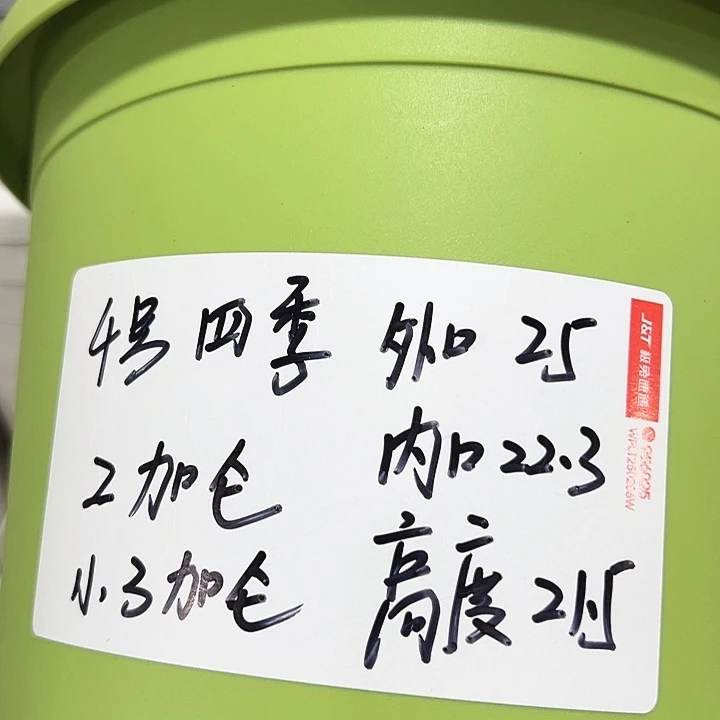 4号 四季 外口 25
2加仑 内口 22.3
小.3加仑 高度 21.5
J&T 极兔速递